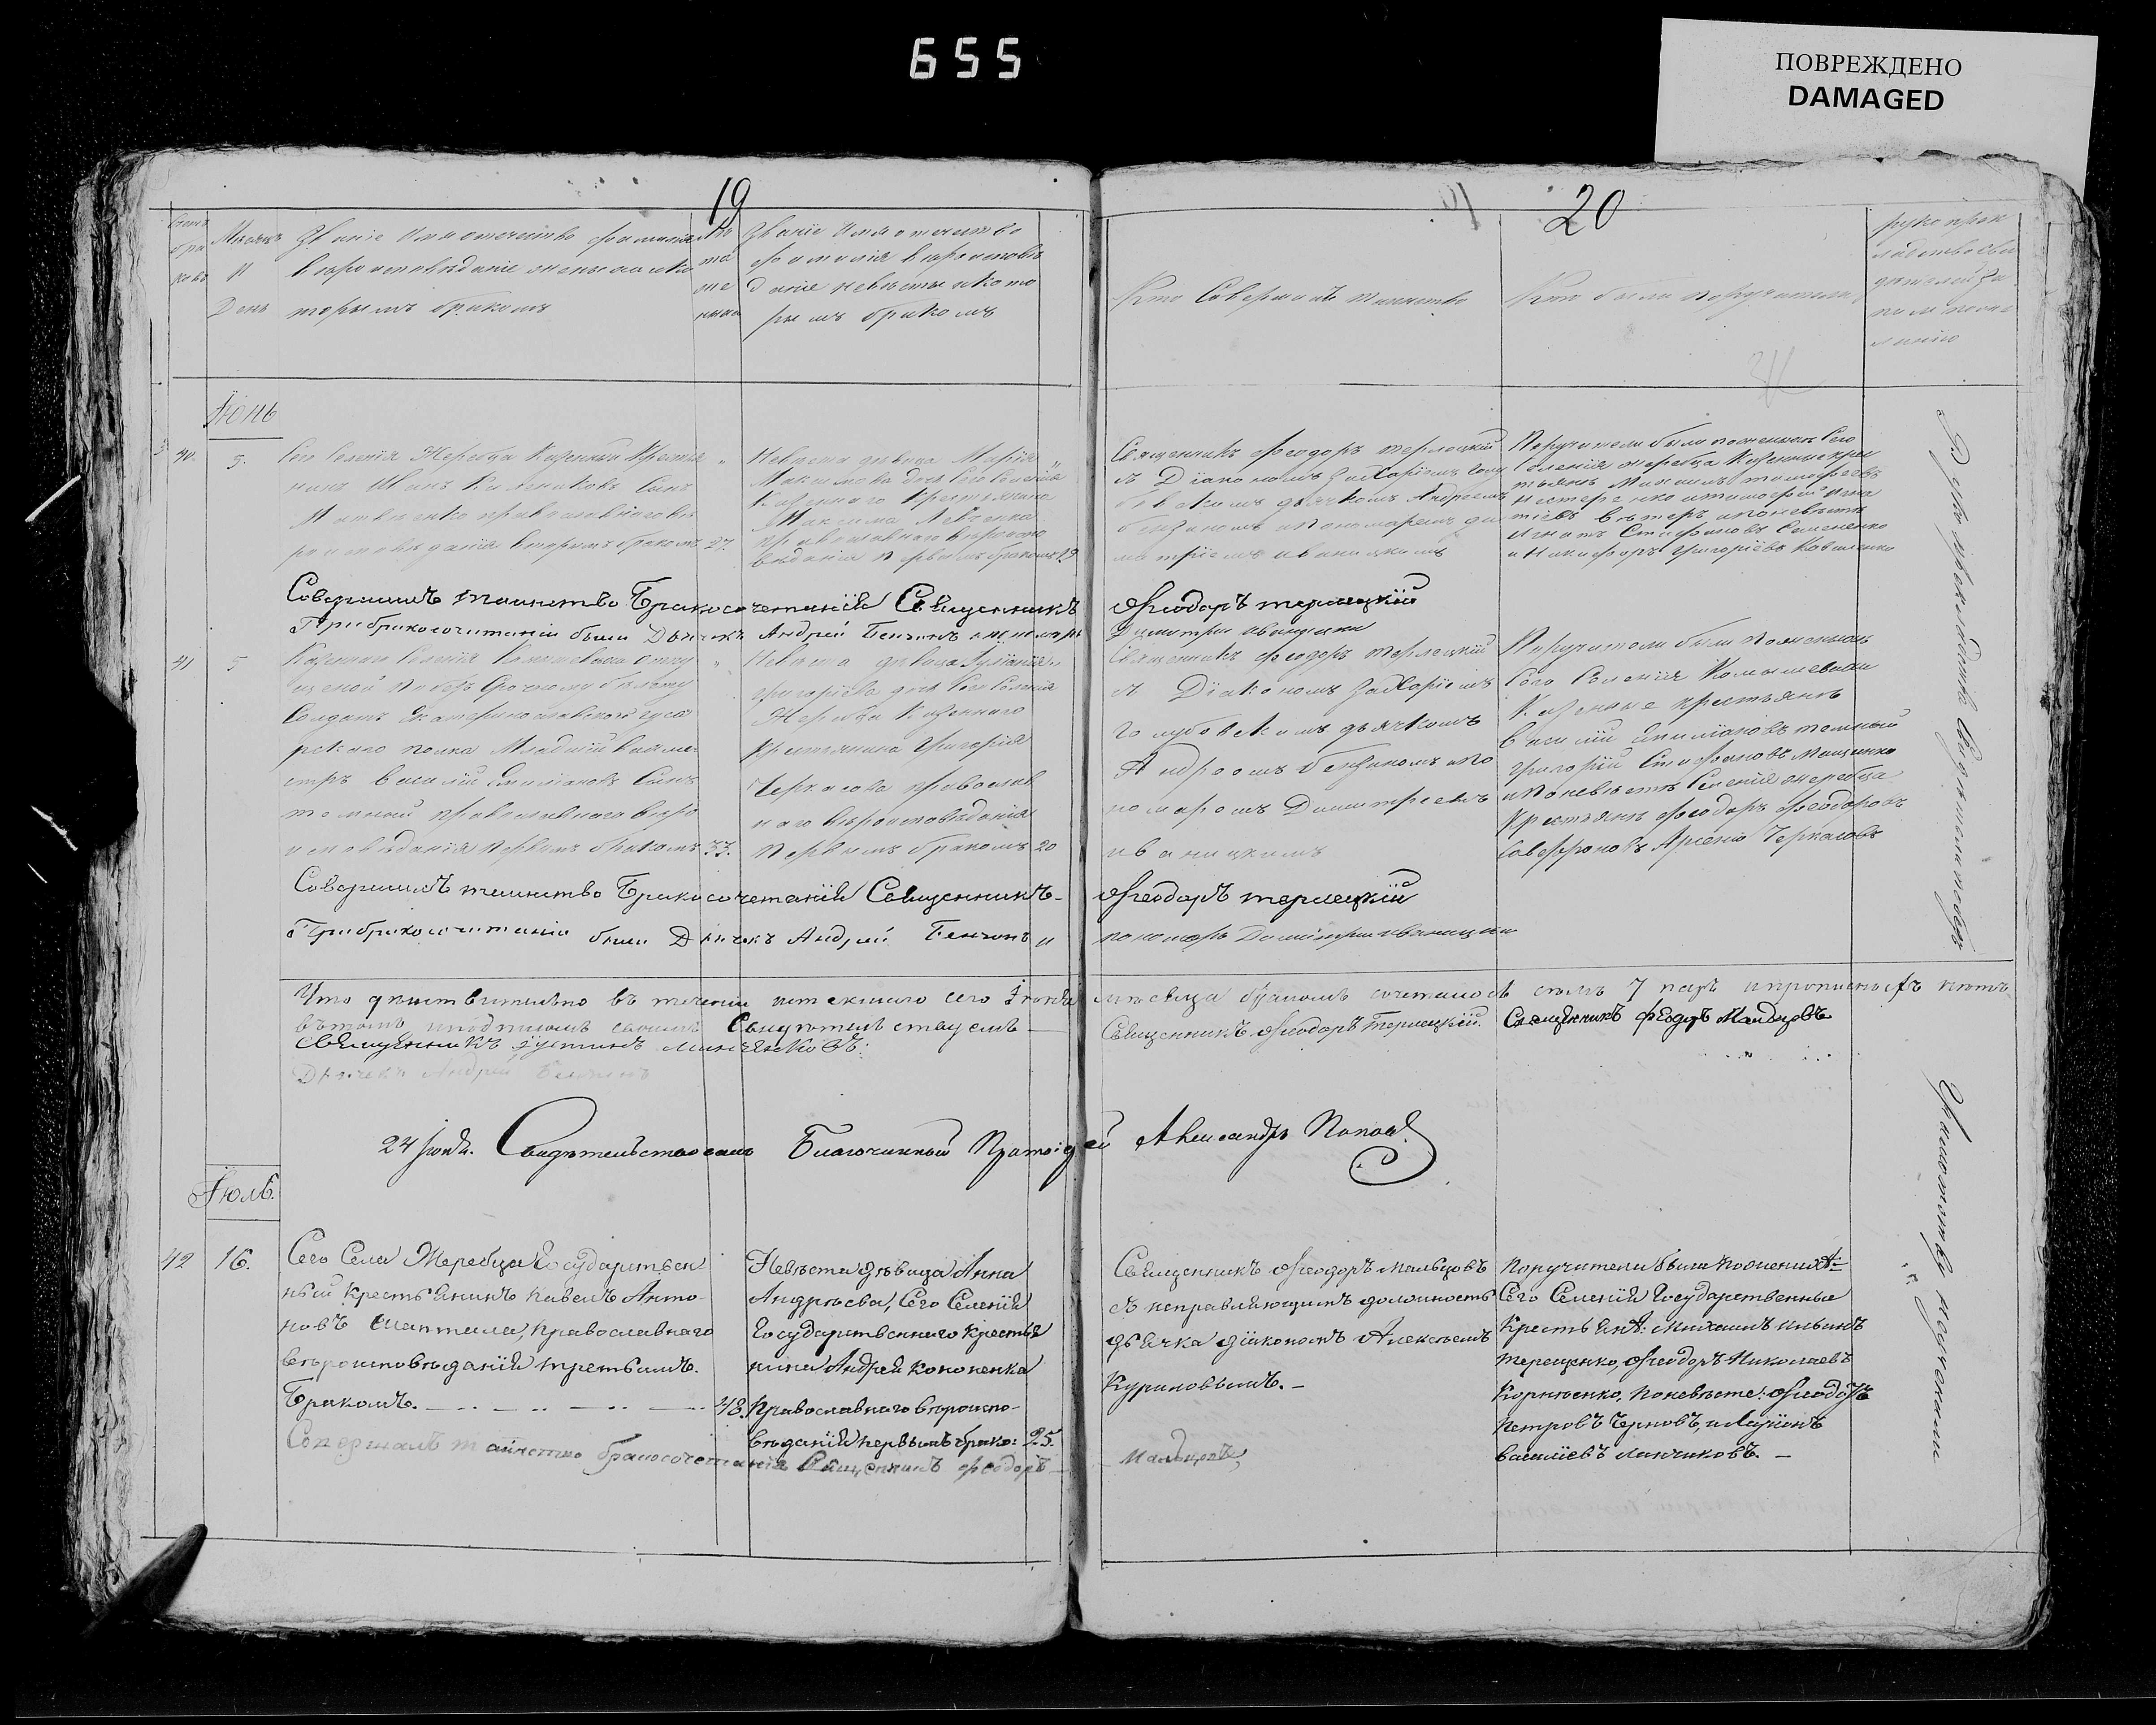 655
ПОВРЕЖДЕНО
DAMAGED
19
20
Счетъ браковъ
Мѣсяцъ и День
Званіе Имя отечество фамилія
вѣроисповѣданіе жениха и ко
торымъ бракомъ
Лѣта жениха
Званіе Имя отечество
фамилія вѣроисповѣ
даніе невѣсты и кото
рымъ бракомъ
Кто Совершалъ таинство
Кто были поручители
рукоприк
ладство сви
дѣтелей
Іюнь
40.
5.
Сего Селенія Жеребца Казенный Крестья
нинъ Иванъ Сынъ
Матвѣенко православнаго вѣ
роисповѣданія вторымъ бракомъ 27.
Невѣста дѣвица Марія
Максимова дочь Сего Селенія
Казеннаго Крестьянина
Максима Левченка
православнаго вѣроиспо
вѣданія первымъ бракомъ 19
Священникъ Феодоръ терлецкій
съ Діакономъ Захаріемъ Голу
бовскимъ дьячкомъ Андреемъ
бензиномъ и Пономаремъ ди
митріемъ иваницкимъ
Поручители были по женихѣ Сего
Селенія жеребца Казенные кре
стьянъ Михаилъ тимофѣевъ
нестеренко и тимофей
вѣтеръ и по невѣстѣ
Игнатъ Стефановъ Семененко
и Никифоръ Григорьевъ Коваленко
Совершилъ таинство Бракосочетанія Священникъ Феодоръ терлецкій
При бракосочитаніи были Дьячекъ Андрей Бензинъ и пономарь Димитри иваницки
41
5
Казеннаго Селенія Камышевахи отпу
щеной по безсрочному билету
Солдатъ Екатеринославскаго гуса
рскаго полка Младшій вахми
стръ василій Емиліановъ Сынъ
темный православнаго вѣро
исповѣданія первымъ бракомъ 33.
Невѣста дѣвица Іуліанія
григоріева дочь Сего Селенія
Жеребца Казеннаго
крестьянина Григорія
Черкасова православ
наго вѣроисповѣданія
первымъ бракомъ 20
Священникъ Феодоръ терлецкій
съ Діакономъ Захаріемъ
голубовскимъ дьячкомъ
Андреемъ бензиномъ и по
номаремъ Димитріемъ
иваницкимъ
Поручители были По женихѣ
Сего Селенія Камышевахи
Казенные крестьянъ
василій емиліановъ темный
григорій Стефановъ пащенко
и по невѣстѣ Селенія жеребца
Крестьянъ Феодоръ Феодоровъ
Сафроновъ Арсеній Черкасовъ
Совершилъ таинство Бракосочетанія Священникъ Феодоръ терлецкій
При бракосочитаніи были Дьячекъ Андрей Бензинъ и пономарь Димитри иваницки
Что дѣйствительно въ теченіи истекшаго сего Іюня мѣсяца бракомъ сочеталось семь 7 паръ
въ томъ подписомъ своимъ Свидѣтельствуемъ
Священникъ Феодоръ Терлецкій. Священникъ Феодоръ Мальцовъ
Священникъ Іустинъ
Дьячекъ Андрей Бензинъ
24 Іюля. Свидѣтельствовалъ Благочинный Протоіерей Александръ Поповъ
Іюль.
42
16.
Сего Села Жеребца Государствен
ный Крестьянинъ Павелъ Анто
новъ Шаптала, православнаго
вѣроисповѣданія третьимъ
Бракомъ. 48.
Невѣста дѣвица Анна
Андрѣева, Сего Селенія
Государственнаго крестья
нина Андрея Кононенка
Православнаго вѣроиспо-
вѣданія первымъ брако: 25.
Священникъ Феодоръ Мальцовъ
съ исправляющимъ должность
дьячка діакономъ Алексѣемъ
Куриновымъ. -
Поручители были по женихѣ:
Сего Селенія Государственные
Крестьянѣ: Михаилъ ильинъ
терещенко, Феодоръ Николаевъ
Корніенко, По невѣстѣ: Феодоръ
Петровъ Черновъ, и Ларіонъ
василіевъ Манчиковъ. -
Совершалъ таинство бракосочетанія Священникъ Феодоръ Мальцовъ